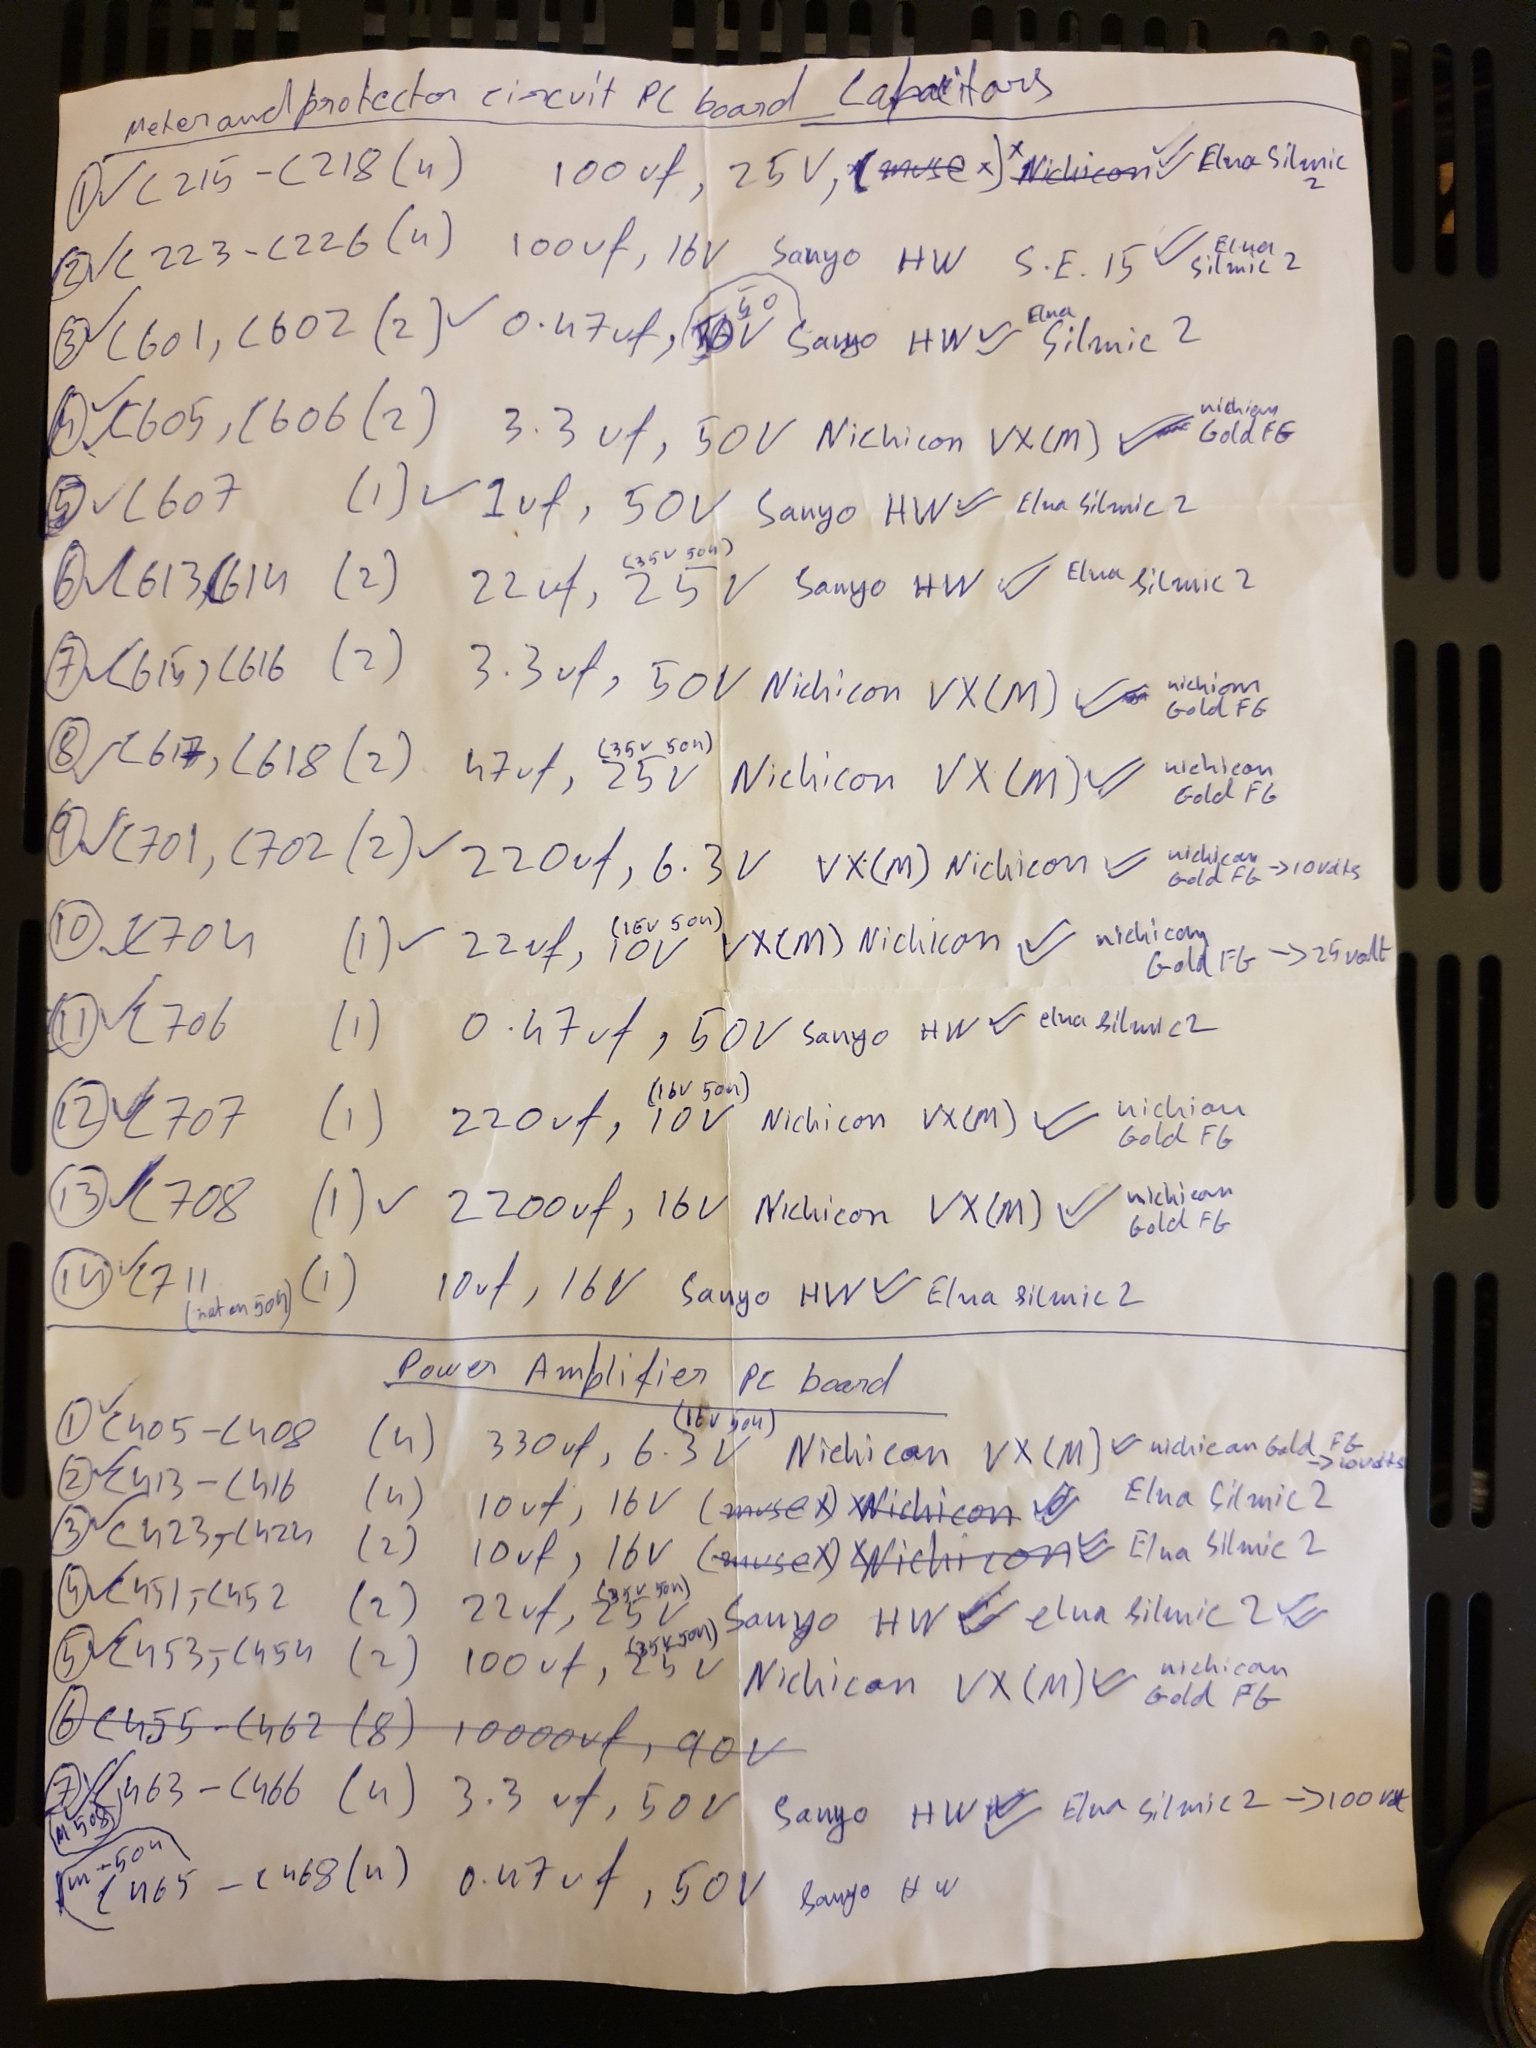 Meter and protector circuit PC board Capacitors
① ✓ C215 - C218 (4) 100uf, 25V, (muse x) x Nichicon ✓ Elna Silmic 2
② ✓ C223 - C226 (4) 100uf, 16V Sanyo HW S.E. 15 ✓ Elna Silmic 2
③ ✓ C601, C602 (2) ✓ 0.47uf, 50V Sanyo HW ✓ Elna Silmic 2
④ ✓ C605, C606 (2) 3.3uf, 50V Nichicon VX(M) ✓ nichicon Gold FG
⑤ ✓ C607 (1) ✓ 1uf, 50V Sanyo HW ✓ Elna Silmic 2
⑥ ✓ C613, C614 (2) 22uf, 25V (35V 504) Sanyo HW ✓ Elna Silmic 2
⑦ ✓ C615, C616 (2) 3.3uf, 50V Nichicon VX(M) ✓ nichicon Gold FG
⑧ ✓ C617, C618 (2) 47uf, 25V (35V 504) Nichicon VX(M) ✓ nichicon Gold FG
⑨ ✓ C701, C702 (2) ✓ 220uf, 6.3V VX(M) Nichicon ✓ nichicon Gold FG → 10volts
⑩ C704 (1) ✓ 22uf, 10V (16V 504) VX(M) Nichicon ✓ nichicon Gold FG → 25 volt
⑪ ✓ C706 (1) 0.47uf, 50V Sanyo HW ✓ elna silmic 2
⑫ ✓ C707 (1) 220uf, 10V (16V 504) Nichicon VX(M) ✓ nichion Gold FG
⑬ ✓ C708 (1) ✓ 2200uf, 16V Nichicon VX(M) ✓ nichicon Gold FG
⑭ ✓ C711 (not on 504) (1) 10uf, 16V Sanyo HW ✓ Elna silmic 2
Power Amplifier PC board
① ✓ C405 - C408 (4) 330uf, 6.3V (16V 504) Nichicon VX(M) ✓ nichican Gold FG → 10volts
② ✓ C413 - C416 (4) 10uf, 16V (muse x) x Nichicon ✓ Elna Silmic 2
③ ✓ C423, - C424 (2) 10uf, 16V (muse x) x Nichicon ✓ Elna Silmic 2
④ ✓ C451, - C452 (2) 22uf, 25V (35V 504) Sanyo HW ✓ elna silmic 2 ✓
⑤ ✓ C453, - C454 (2) 100uf, 25V (35V 504) Nichicon VX(M) ✓ nichican Gold FG
⑥ C455 - C462 (8) 10000uf, 90V
⑦ ✓ C463 - C466 (4) 3.3uf, 50V Sanyo HW ✓ Elna silmic 2 → 100 volt
(M 508)
m-504
C465 - C468 (4) 0.47uf, 50V Sanyo HW